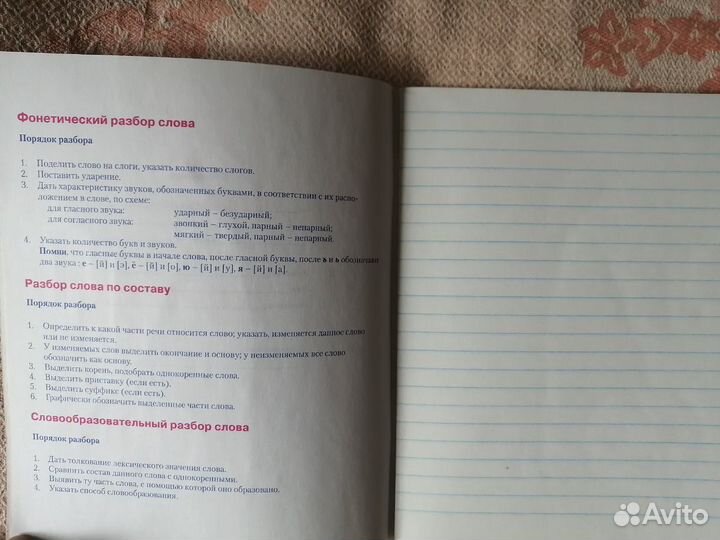 Фонетический разбор слова
Порядок разбора
1. Поделить слово на слоги, указать количество слогов.
2. Поставить ударение.
3. Дать характеристику звуков, обозначенных буквами, в соответствии с их распо-
ложением в слове, по схеме:
для гласного звука: ударный – безударный;
для согласного звука: звонкий – глухой, парный – непарный;
мягкий – твердый, парный – непарный.
4. Указать количество букв и звуков.
Помни, что гласные буквы в начале слова, после гласной буквы, после ъ и ь обозначают
два звука : е – [й] и [э], ё – [й] и [о], ю – [й] и [у], я – [й] и [а].
Разбор слова по составу
Порядок разбора
1. Определить к какой части речи относится слово; указать, изменяется данное слово
или не изменяется.
2. У изменяемых слов выделить окончание и основу; у неизменяемых все слово
обозначить как основу.
3. Выделить корень, подобрать однокоренные слова.
4. Выделить приставку (если есть).
5. Выделить суффикс (если есть).
6. Графически обозначить выделенные части слова.
Словообразовательный разбор слова
Порядок разбора
1. Дать толкование лексического значения слова.
2. Сравнить состав данного слова с однокоренными.
3. Выявить ту часть слова, с помощью которой оно образовано.
4. Указать способ словообразования.
Avito